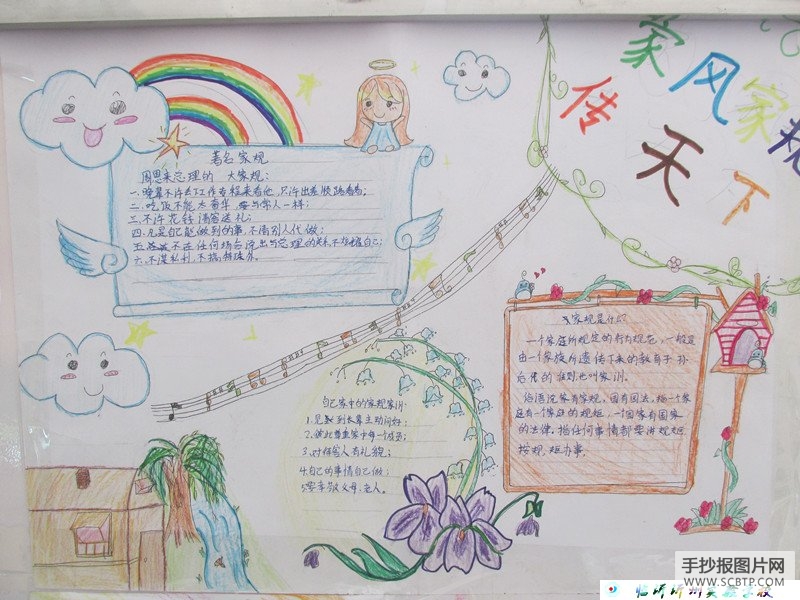 家风家规
传天下
著名家规
周恩来总理的 大家规：
一.晚辈不许去工作专程来看他,只许出差顺路看看；
二.吃饭不能太奢华,要与常人一样；
三.不许花钱请客送礼；
四.凡是自己能做到的事,不需别人代做；
五.不在任何场合流出与总理的关系,不炫耀自己；
六.不谋私利,不搞特殊.
家规是什么
一个家庭所规定的行为规范,一般是
由一个家族所遗传下来的教育子孙
后代的准则,也叫家训。
俗语说家有家规,国有国法,指一个家
庭有一个家庭的规矩,一个国家有国家
的法律。指任何事情都要讲规矩
按规矩办事。
自己家中的家规家训
1.见到长辈主动问好；
2.彼此尊重家中每一个成员；
3.对待客人有礼貌；
4.自己的事情自己做；
5.要孝敬父母、老人。
手抄报图片网
WWW.SCBTP.COM
临沂沂州实验学校